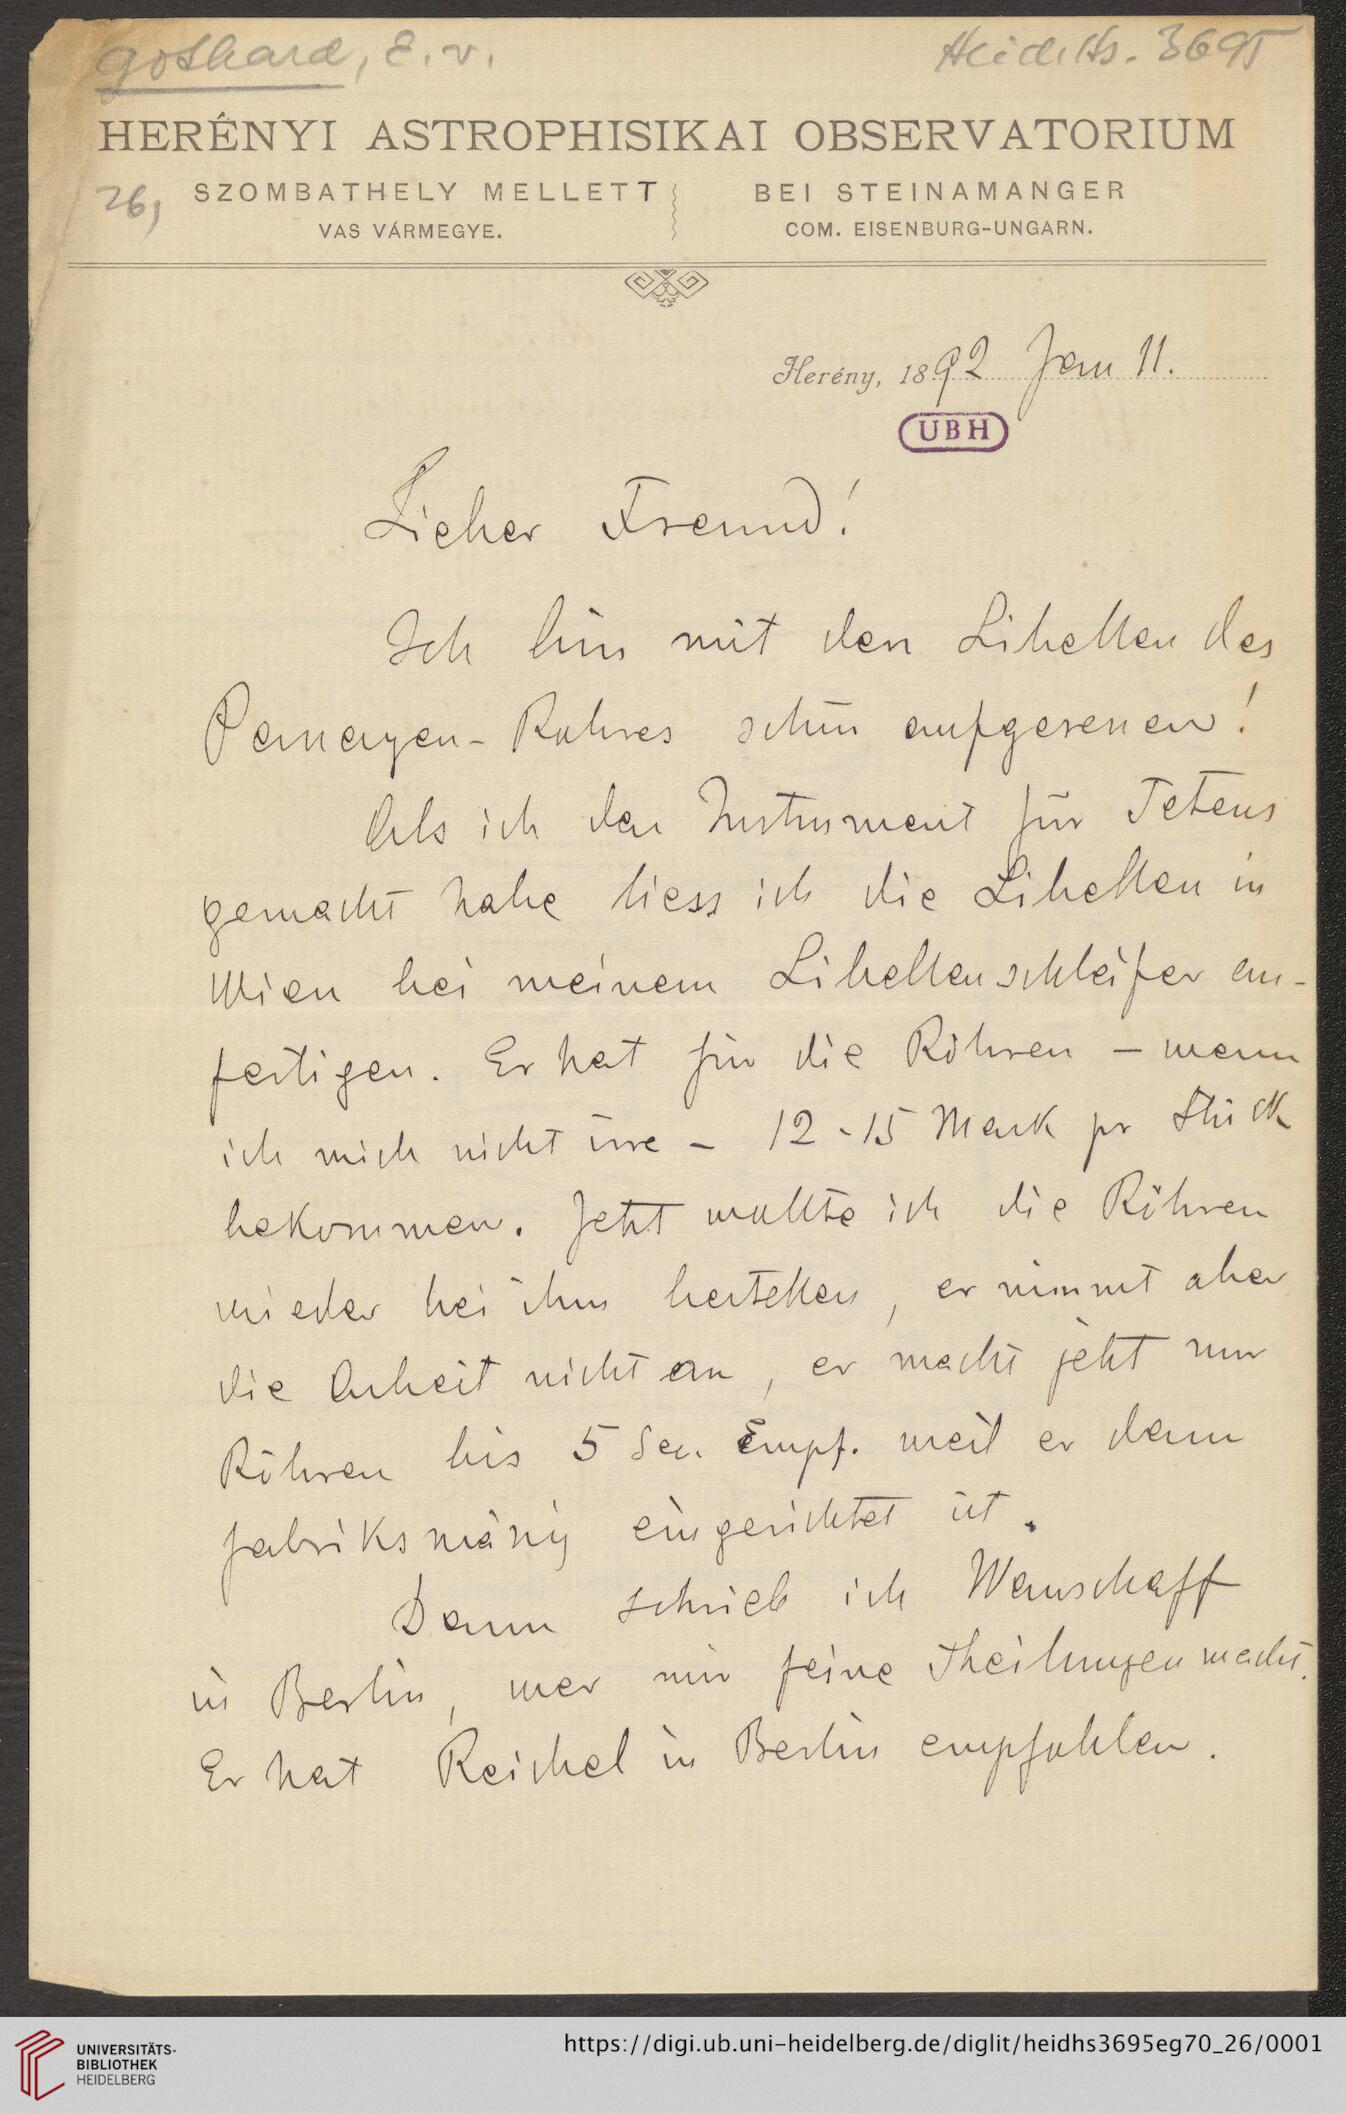 Gothard, E. v.
Heid. Hs. 3695
HERÉNYI ASTROPHISIKAI OBSERVATORIUM
26,
SZOMBATHELY MELLETT
VAS VÁRMEGYE.
BEI STEINAMANGER
COM. EISENBURG-UNGARN.
Herény, 1892 Jan 11.
UBH
Lieber Freund!
Ich bin mit den Libellen des
Passagen-Rohres schön aufgesessen!
Als ich das Instrument für Tetens
gemacht habe liess ich die Libellen in
Wien bei meinem Libellenschleifer an-
fertigen. Er hat für die Röhren – wenn
ich mich nicht irre – 12-15 Mark pr Stück
bekommen. Jetzt wollte ich die Röhren
wieder bei ihm herstellen, er nimmt aber
die Arbeit nicht an, er macht jetzt nur
Röhren bis 5 Sec. Empf. weil er dann
fabriksmässig eingerichtet ist.
Dann schrieb ich Wanschaff
in Berlin, wer mir feine Theilungen macht.
Er hat Reichel in Berlin empfohlen.
UNIVERSITÄTS-
BIBLIOTHEK
HEIDELBERG
https://digi.ub.uni-heidelberg.de/diglit/heidhs3695eg70_26/0001